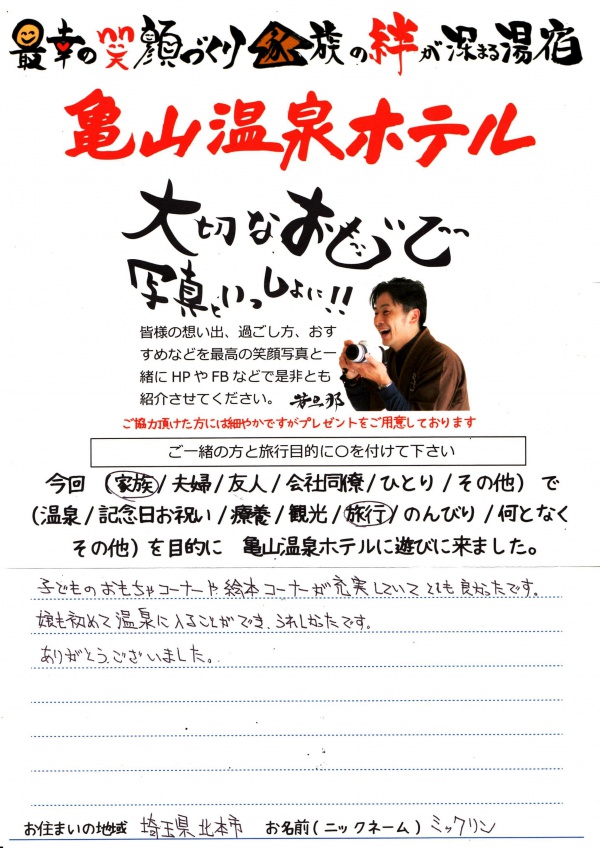 最幸の笑顔づくり家族の絆が深まる湯宿
亀山温泉ホテル
大切なおもいで
写真といっしょに!!
皆様の想い出、過ごし方、おす
すめなどを最高の笑顔写真と一
緒にHPやFBなどで是非とも
紹介させてください。 若旦那
ご協力頂けた方には細やかですがプレゼントをご用意しております
ご一緒の方と旅行目的に〇を付けて下さい
今回 (家族/夫婦/友人/会社同僚/ひとり/その他) で
(温泉/記念日お祝い/療養/観光/旅行/のんびり/何となく
その他) を目的に 亀山温泉ホテルに遊びに来ました。
子どものおもちゃコーナーや絵本コーナーが充実していてとても良かったです。
娘も初めて温泉に入ることができ、うれしかったです。
ありがとうございました。
お住まいの地域 埼玉県北本市 お名前(ニックネーム) ミックリン